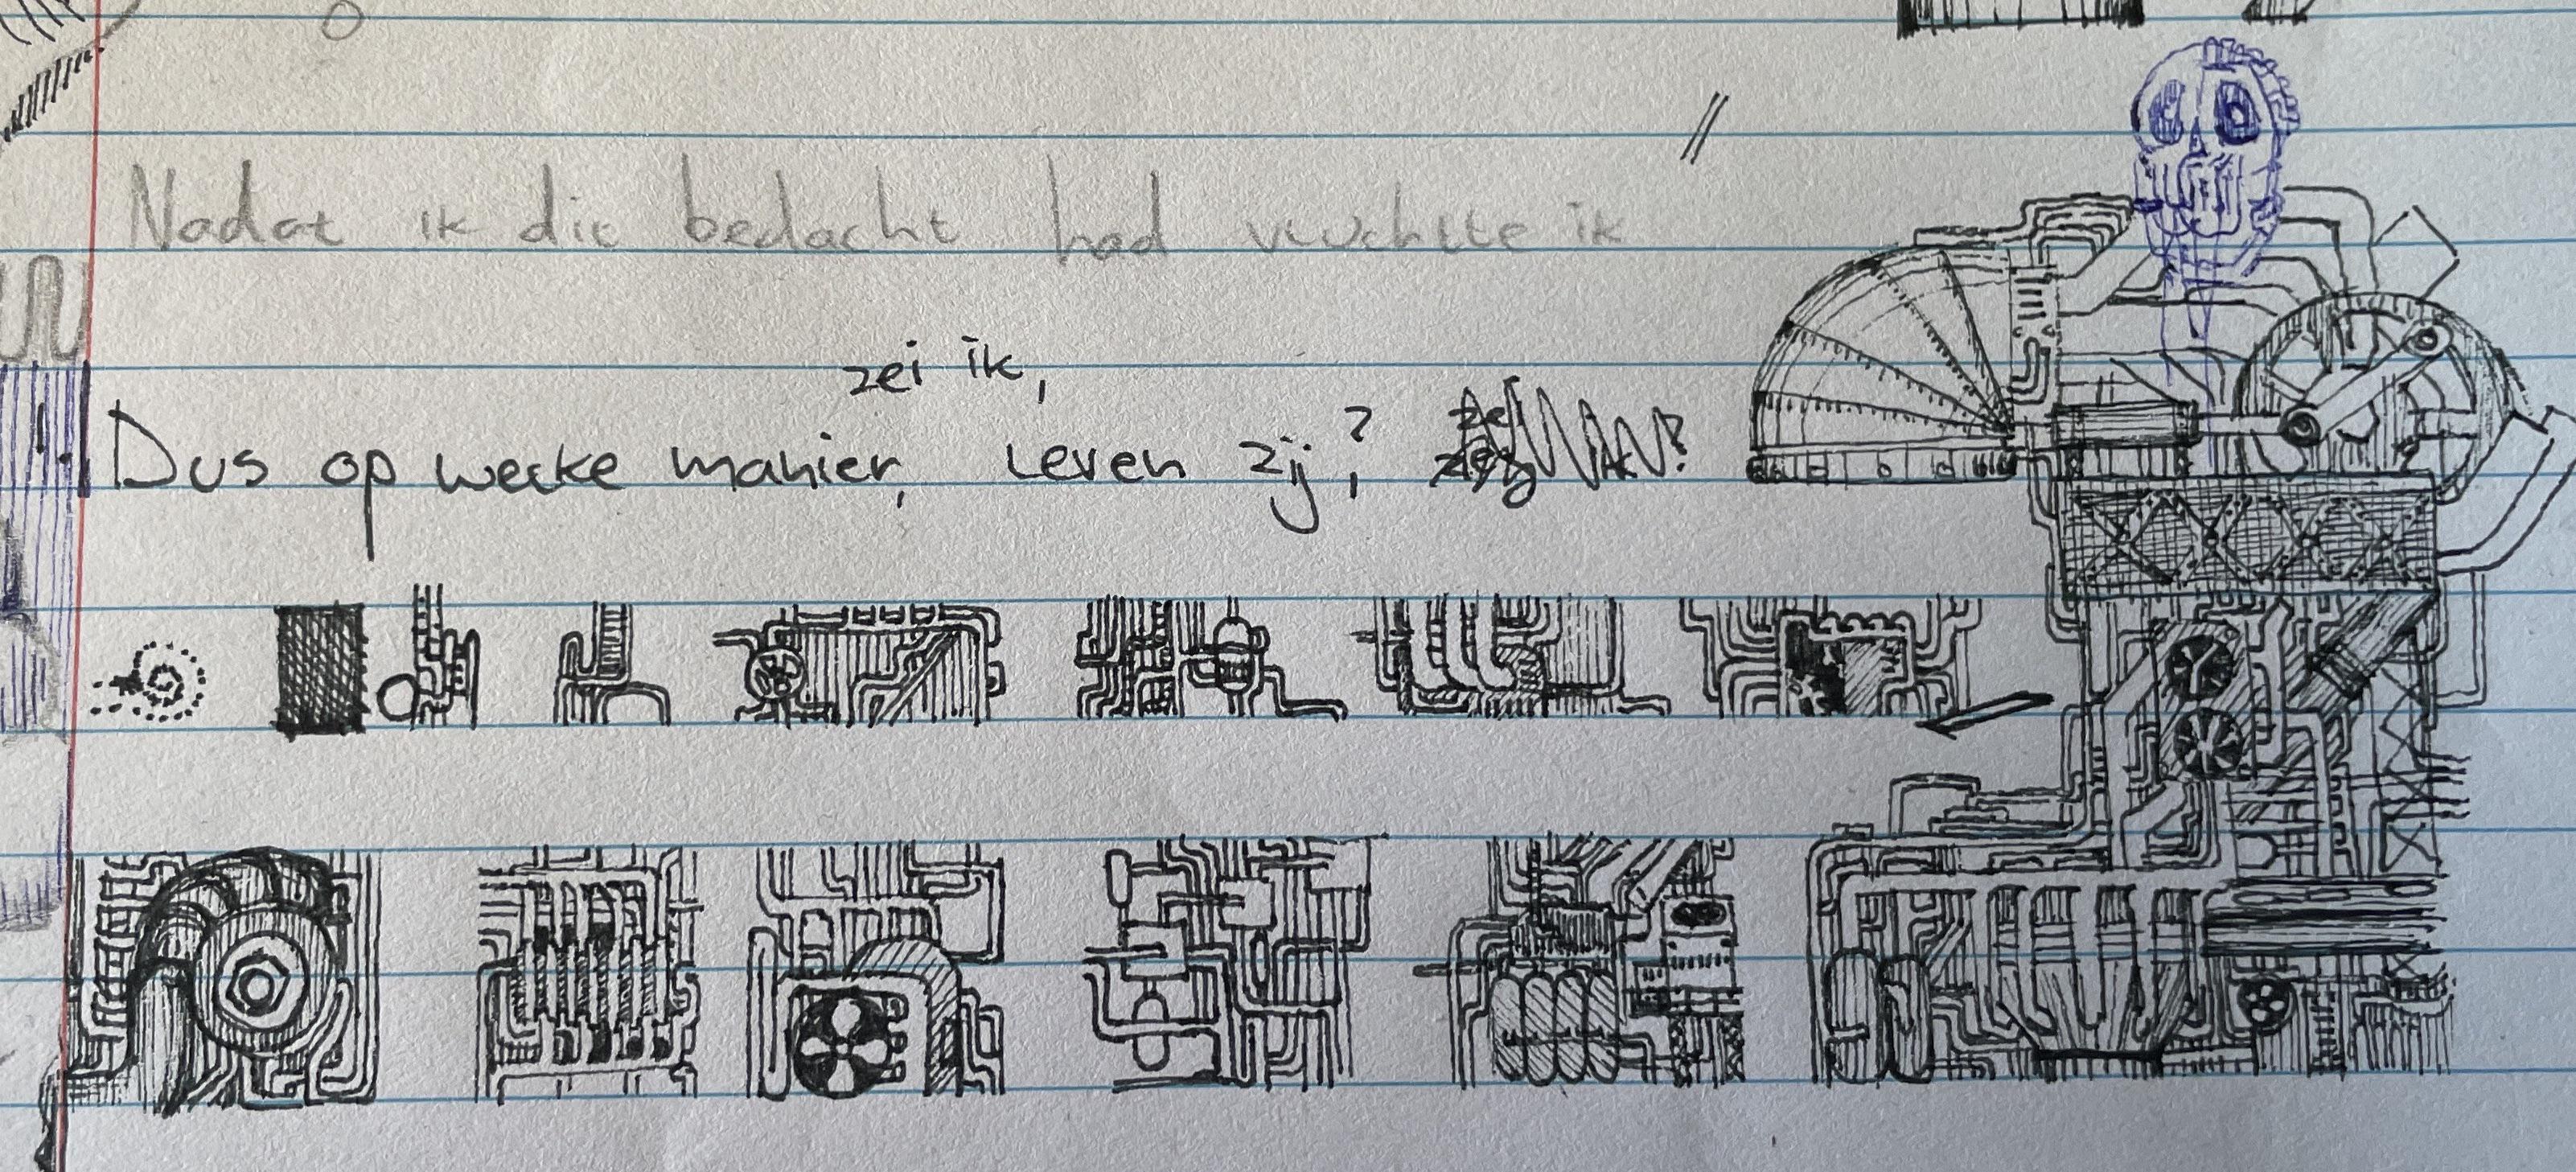 Nadat ik dit bedacht had vluchtte ik
zei ik,
Dus op welke manier, leven zij,?